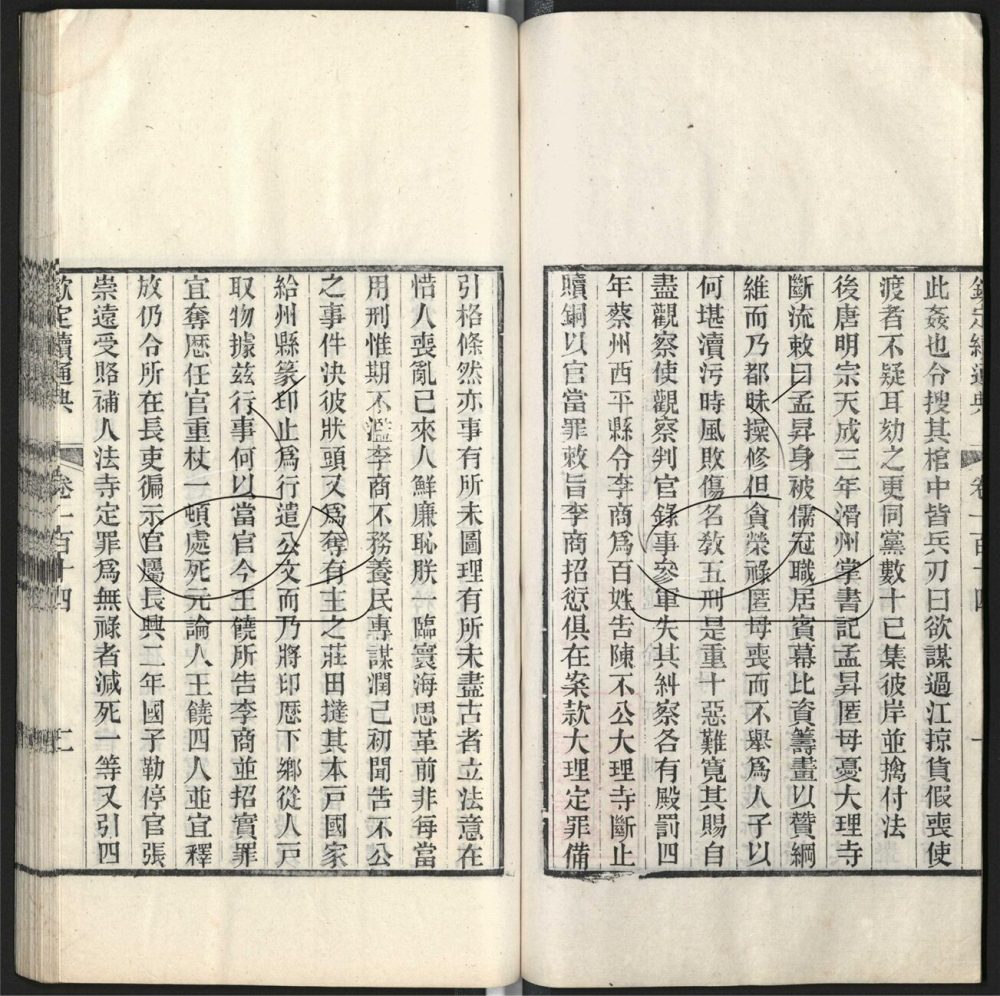 欽定續通典 卷一百十四 一
此姦也令搜其棺中皆兵刃曰欲謀過江掠貨假喪使
渡者不疑耳劾之更同黨數十已集彼岸並擒付法
後唐明宗天成三年滑州掌書記孟昇匿母憂大理寺
斷流敕曰孟昇身被儒冠職居賓幕比資籌畫以贊綱
維而乃都昧操修但貪榮祿匿母喪而不舉為人子以
何堪瀆污時風敗傷名教五刑是重十惡難寬其賜自
盡觀察使觀察判官錄事參軍失其糾察各有殿罰四
年蔡州西平縣令李商為百姓告陳不公大理寺斷止
贖銅以官當罪敕旨李商招愆俱在案款大理定罪備
引格條然亦事有所未圖理有所未盡古者立法意在
惜人喪亂已來人鮮廉恥朕一臨寰海思革前非每當
用刑惟期不濫李商不務養民專謀潤己初聞告不公
之事件決彼狀頭又為奪有主之莊田撻其本戶國家
給州縣篆印止為行遣公文而乃將印歷下鄉從人戶
取物據茲行事何以當官今王饒所告李商並招實罪
宜奪歷任官重杖一頓處死元論人王饒四人並宜釋
放仍令所在長吏徧示官屬長興二年國子勒停官張
崇遠受賂補人法寺定罪為無祿者減死一等又引四
欽定續通典 卷一百十四 二